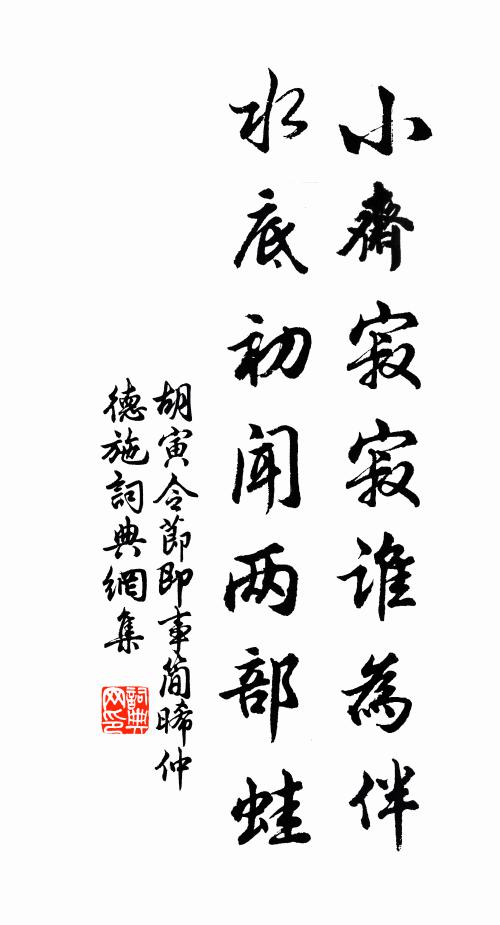 小齋寂寂誰為伴
水底初聞两部蛙
胡寅令節即事簡晞仲
德施詞典網集
詞典網印